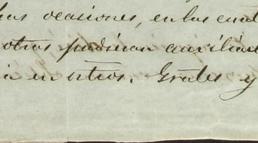 ocasiones, en las cual
otras pudieran auxiliar
en otros. Gratis y